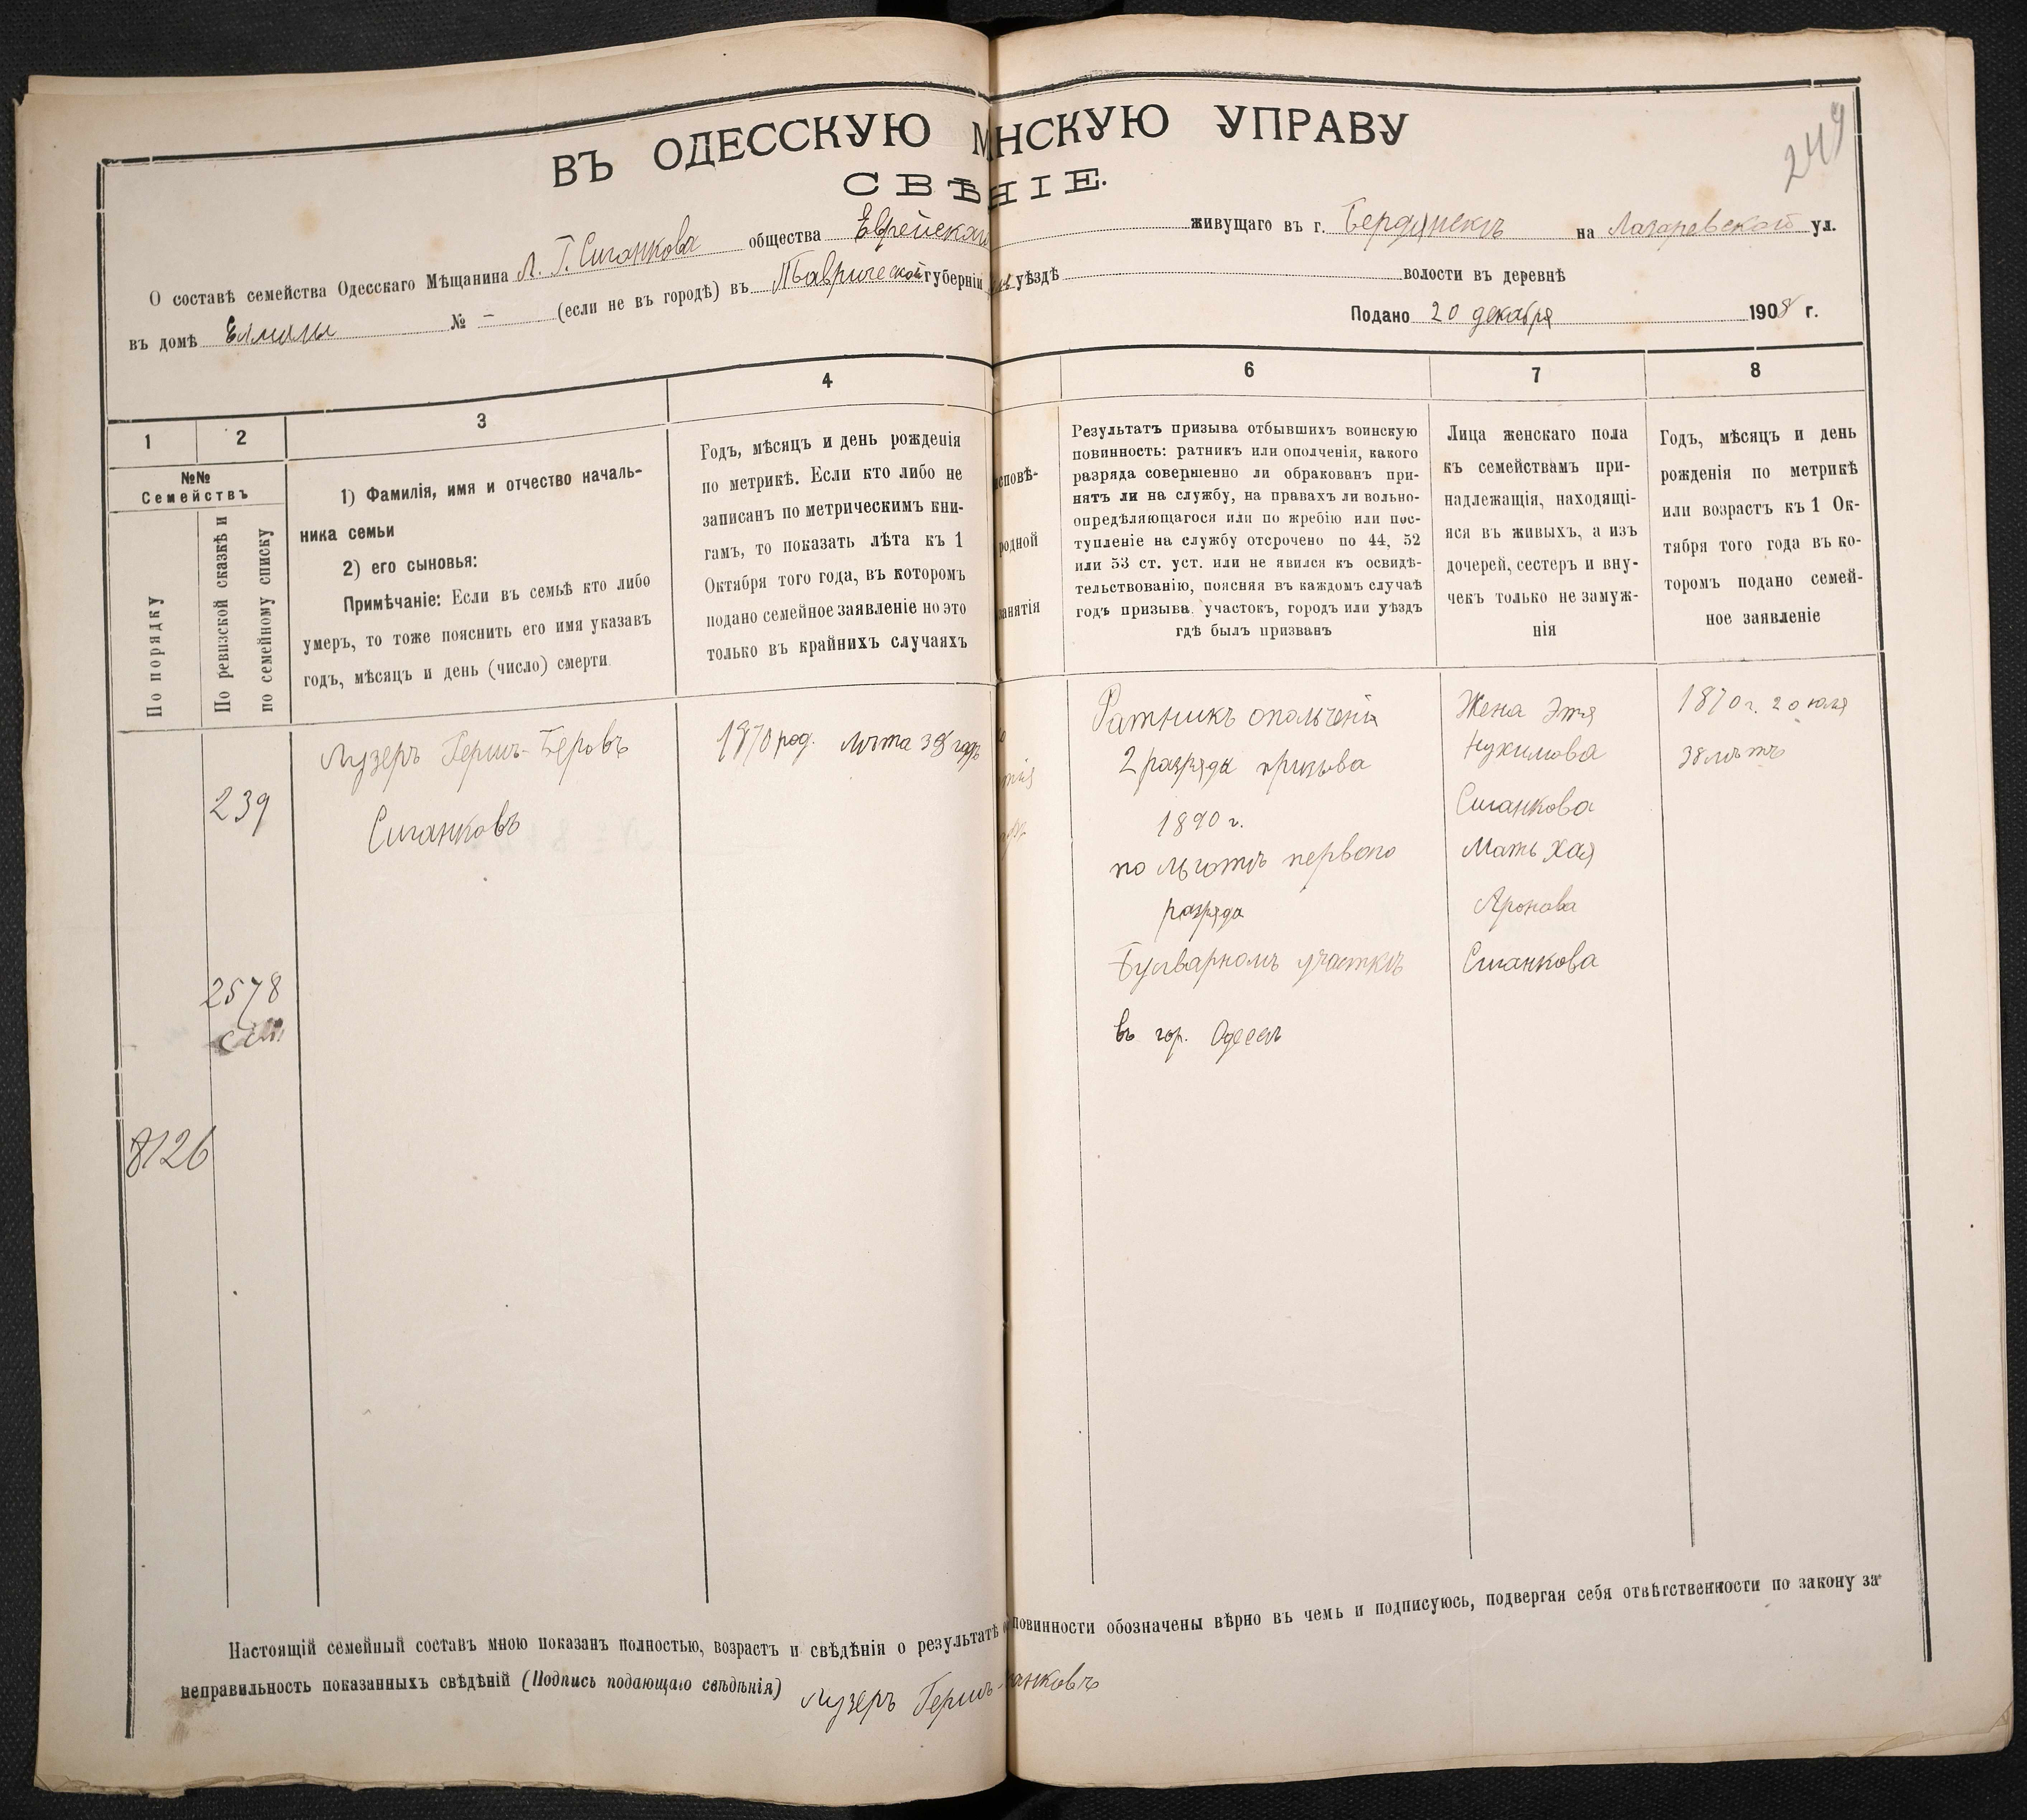 249
ВЪ ОДЕССКУЮ М НСКУЮ УПРАВУ
СВѢ НІЕ.
О составѣ семейства Одесскаго Мѣщанина Л. Г. Сиганкова общества Еврейскаго живущаго въ г. Бердянскѣ на Лазаревской ул.
въ домѣ № – (если не въ городѣ) въ Таврической губерніи уѣздѣ волости въ деревнѣ
Подано 20 декабря 1908 г.
1
2
3
4
6
7
8
№№
Семействъ
По порядку
По ревизской сказкѣ и
по семейному списку
1) Фамилія, имя и отчество началь-
ника семьи
2) его сыновья:
Примѣчаніе: Если въ семьѣ кто либо
умеръ, то тоже пояснить его имя указавъ
годъ, мѣсяцъ и день (число) смерти.
Годъ, мѣсяцъ и день рожденія
по метрикѣ. Если кто либо не
записанъ по метрическимъ кни-
гамъ, то показать лѣта къ 1
Октября того года, въ которомъ
подано семейное заявленіе но это
только въ крайнихъ случаяхъ
исповѣ-
родной
занятія
Результатъ призыва отбывшихъ воинскую
повинность: ратникъ или ополченія, какого
разряда совершенно ли обракованъ при-
нятъ ли на службу, на правахъ ли вольно-
опредѣляющагося или по жребію или пос-
тупленіе на службу отсрочено по 44, 52
или 53 ст. уст. или не явился къ освидѣ-
тельствованію, поясняя въ каждомъ случаѣ
годъ призыва. участокъ, городъ или уѣздъ
гдѣ былъ призванъ
Лица женскаго пола
къ семействамъ при-
надлежащія, находящі-
яся въ живыхъ, а изъ
дочерей, сестеръ и вну-
чекъ только не замуж-
нія
Годъ, мѣсяцъ и день
рожденія по метрикѣ
или возрастъ къ 1 Ок-
тября того года въ ко-
торомъ подано семей-
ное заявленіе
239
2578
8126
Лузеръ Гершъ-Беровъ
Сиганковъ
1870 род. лѣта 38 годъ
Ратникъ ополченія
2 разряда призыва
1890 г.
по льготѣ первого
разряда
Бульварномъ участкѣ
въ гор. Одессѣ
Жена Этя
Нухимова
Сиганкова
Мать Хая
Аронова
Сиганкова
1870 г. 20 юля
38 лѣтъ
Настоящій семейный составъ мною показанъ полностью, возрастъ и свѣдѣнія о результатѣ повинности обозначены вѣрно въ чемъ и подписуюсь, подвергая себя отвѣтственности по закону за
неправильность показанныхъ свѣдѣній (Подпись подающаго свѣдѣнія) Лузеръ Гершъ- ганковъ